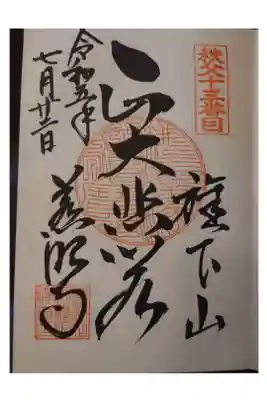 秩父十三番
旗下山
大悲
令和五年
七月廿二日
慈眼寺